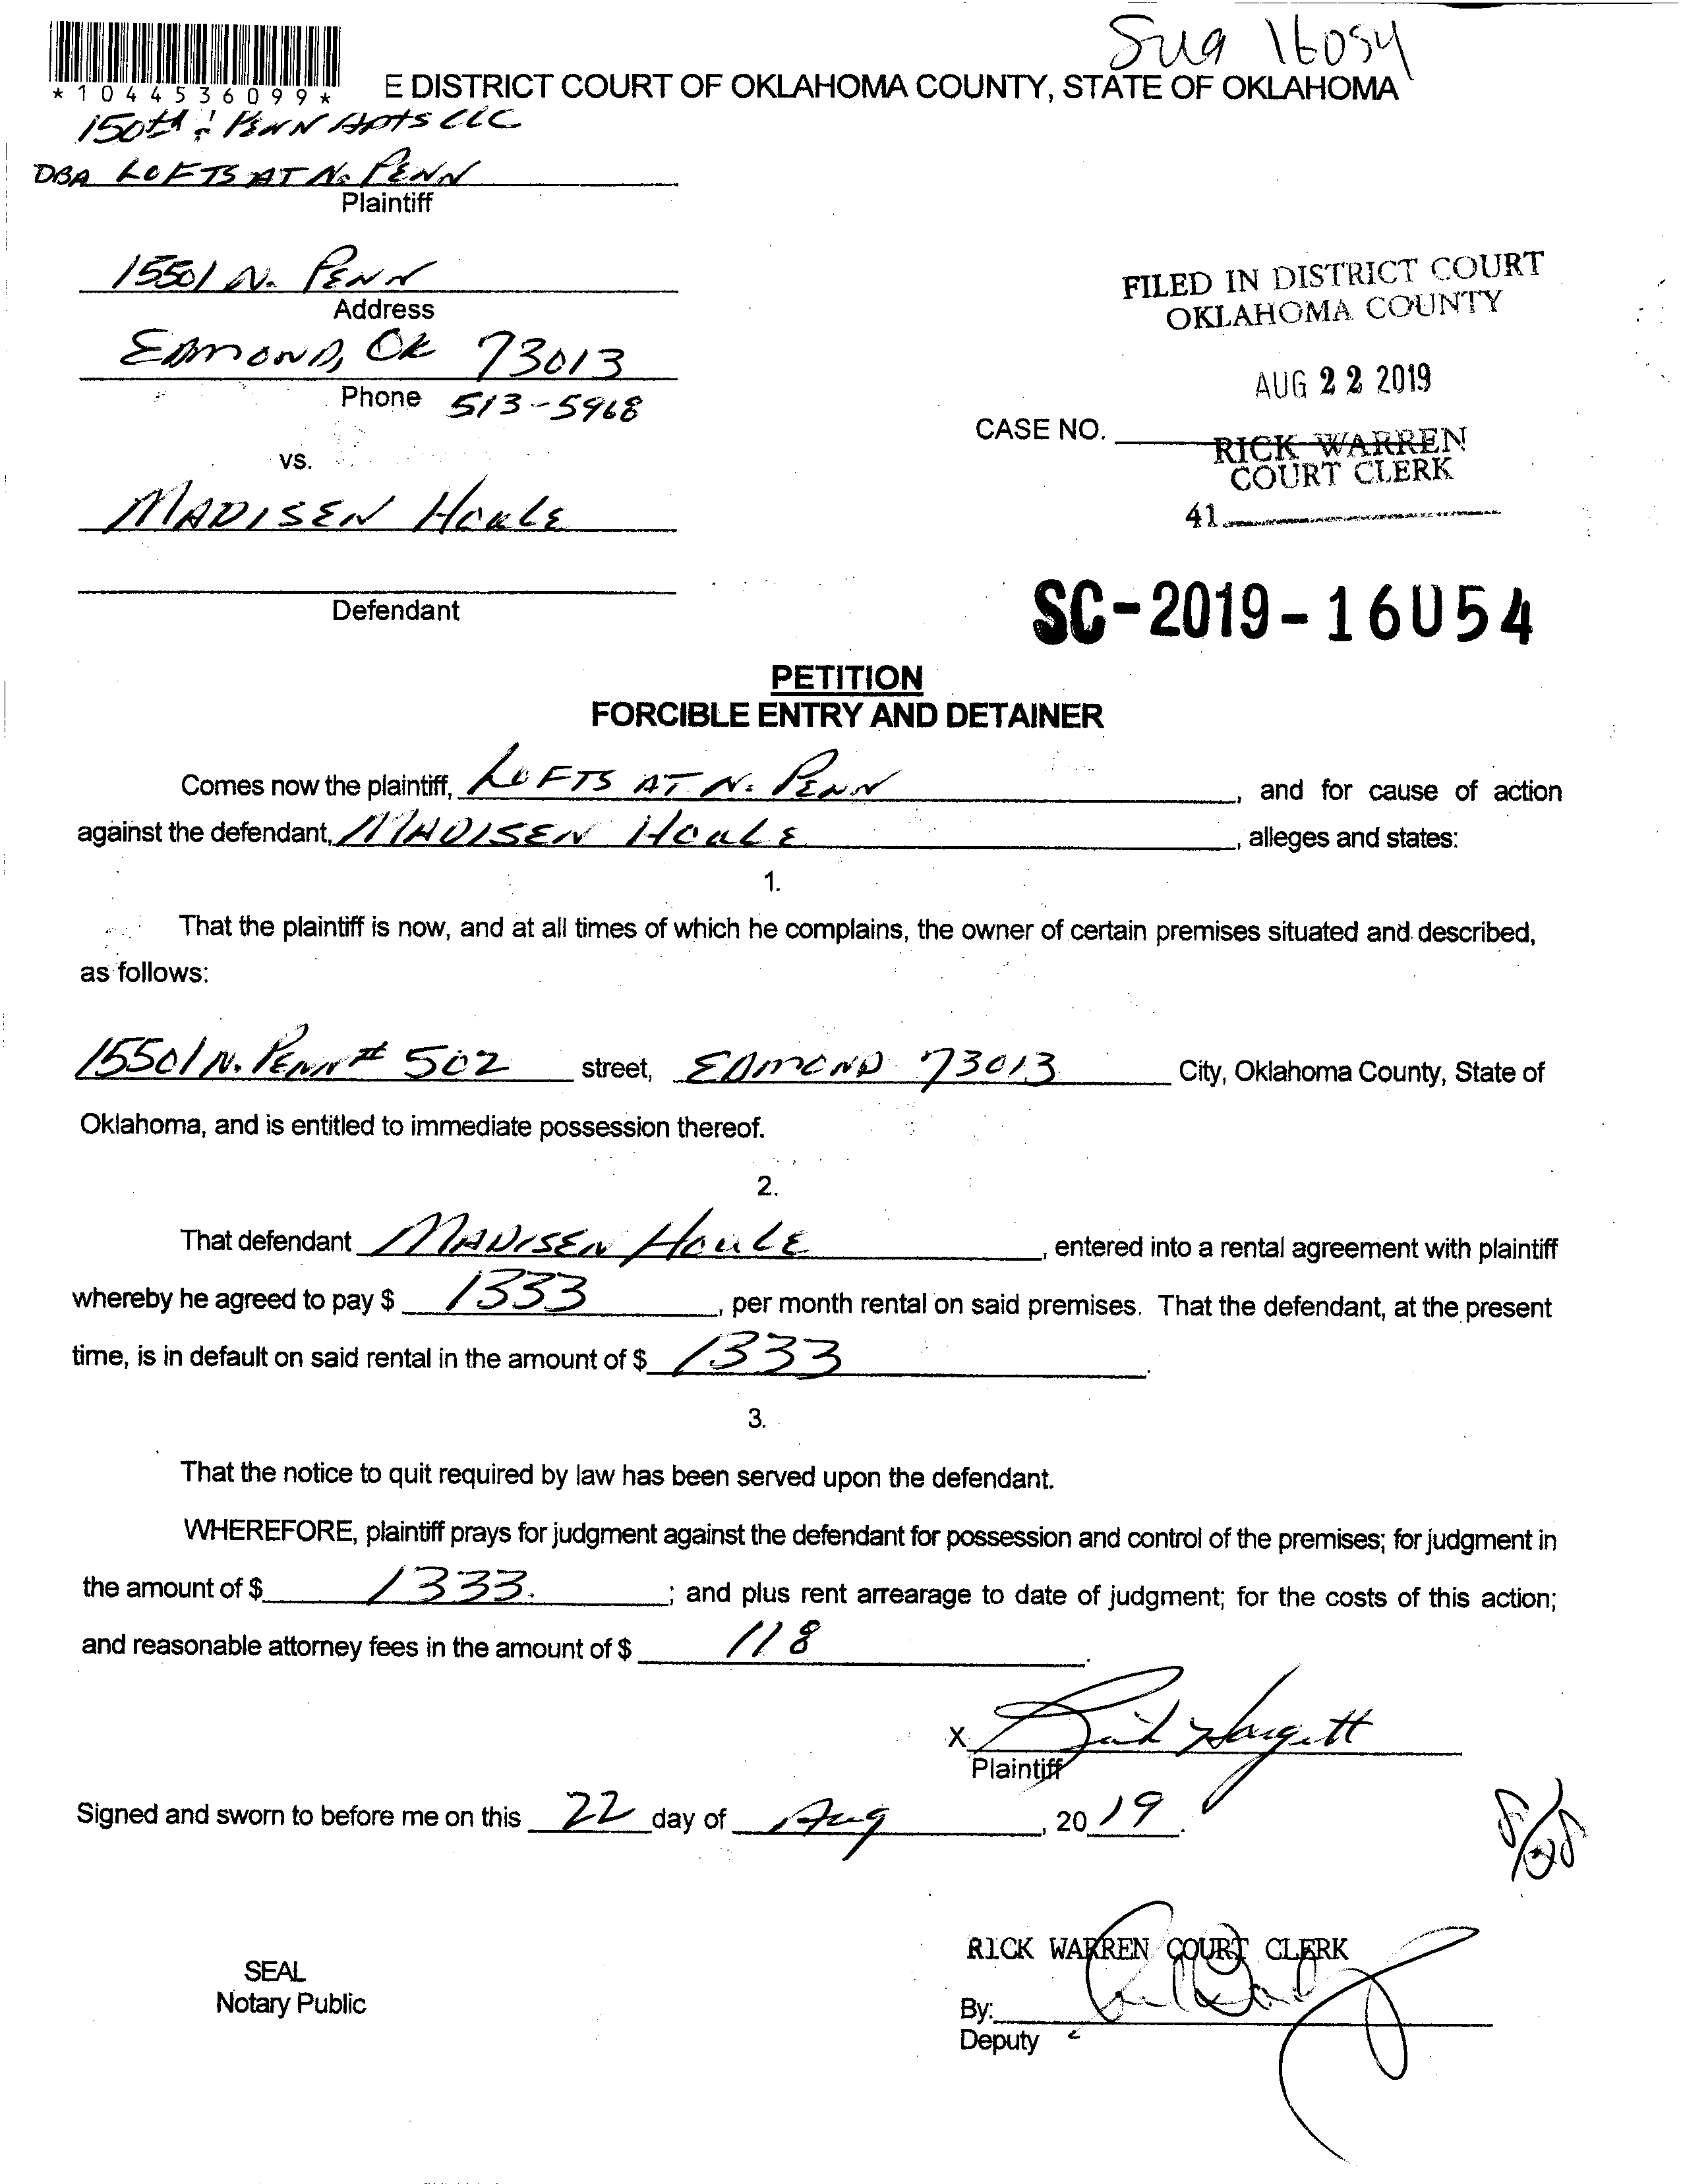 Su9 16054
*1044536099*
E DISTRICT COURT OF OKLAHOMA COUNTY, STATE OF OKLAHOMA
150th & PENN APTS LLC
DBA LOFTS AT N. PENN
Plaintiff
15501 N. PENN
Address
FILED IN DISTRICT COURT
OKLAHOMA COUNTY
EDMOND, OK 73013
Phone 513-5968
AUG 22 2019
CASE NO.
RICK WARREN
COURT CLERK
41
vs.
MADISEN HOULE
Defendant
SC-2019-16054
PETITION
FORCIBLE ENTRY AND DETAINER
Comes now the plaintiff, LOFTS AT N. PENN, and for cause of action
against the defendant, MADISEN HOULE, alleges and states:
1.
That the plaintiff is now, and at all times of which he complains, the owner of certain premises situated and described,
as follows:
15501 N. PENN # 502 street, EDMOND 73013 City, Oklahoma County, State of
Oklahoma, and is entitled to immediate possession thereof.
2.
That defendant MADISEN HOULE, entered into a rental agreement with plaintiff
whereby he agreed to pay $ 1333, per month rental on said premises. That the defendant, at the present
time, is in default on said rental in the amount of $ 1333.
3.
That the notice to quit required by law has been served upon the defendant.
WHEREFORE, plaintiff prays for judgment against the defendant for possession and control of the premises; for judgment in
the amount of $ 1333. ; and plus rent arrearage to date of judgment; for the costs of this action;
and reasonable attorney fees in the amount of $ 118.
X Hargett
Plaintiff
Signed and sworn to before me on this 22 day of Aug, 2019.
8/28
RICK WARREN COURT CLERK
SEAL
Notary Public
By:
Deputy